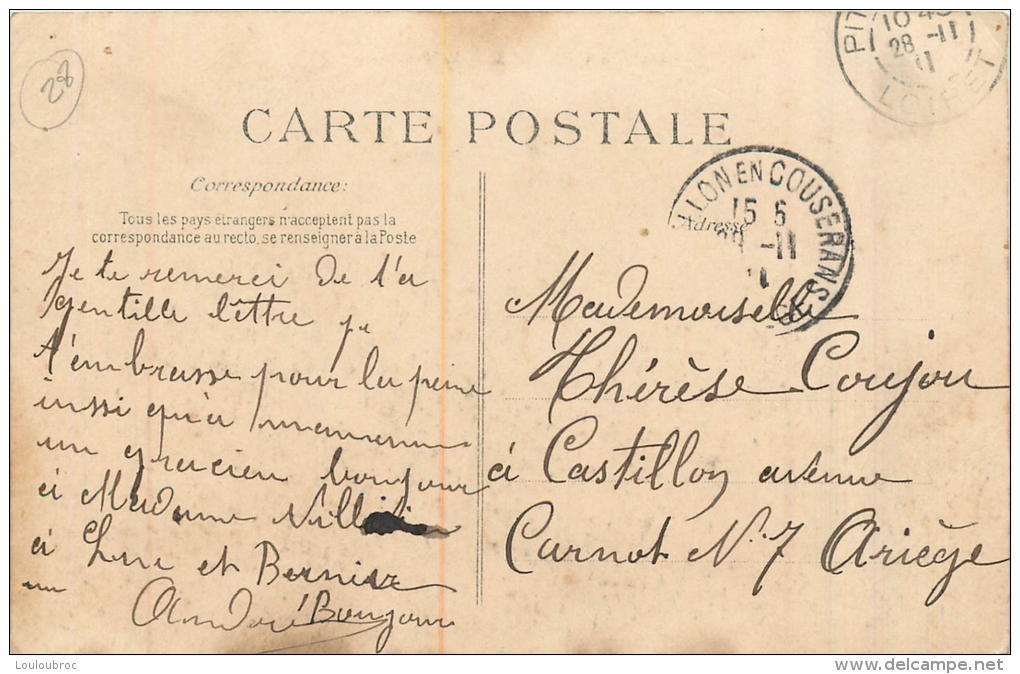 28
PIT
10 45
28 -11
11
LOIRET
CARTE POSTALE
LLON EN COUSERANS
15 5
29 -11
11
Correspondance:
Adresse
Tous les pays étrangers n'acceptent pas la
correspondance au recto, se renseigner à la Poste
Je te remerci de t'a
gentille lettre je
t'embrasse pour la peine
inssi qu'a maman
un gracieu bonjour
à Madame
à et Bernise
Bonjour
Mademoiselle
Thérèse Coujou
à Castillon avenue
Carnot N.º 7 Ariège
Louloubroc
delcampe.net